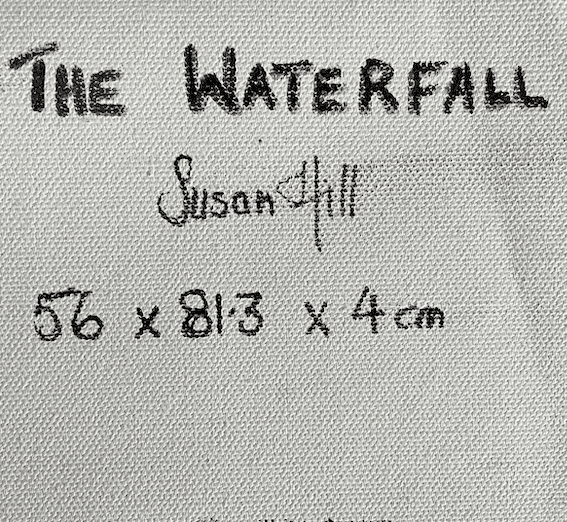 THE WATERFALL
Susan Hill
56 x 81·3 x 4 cm